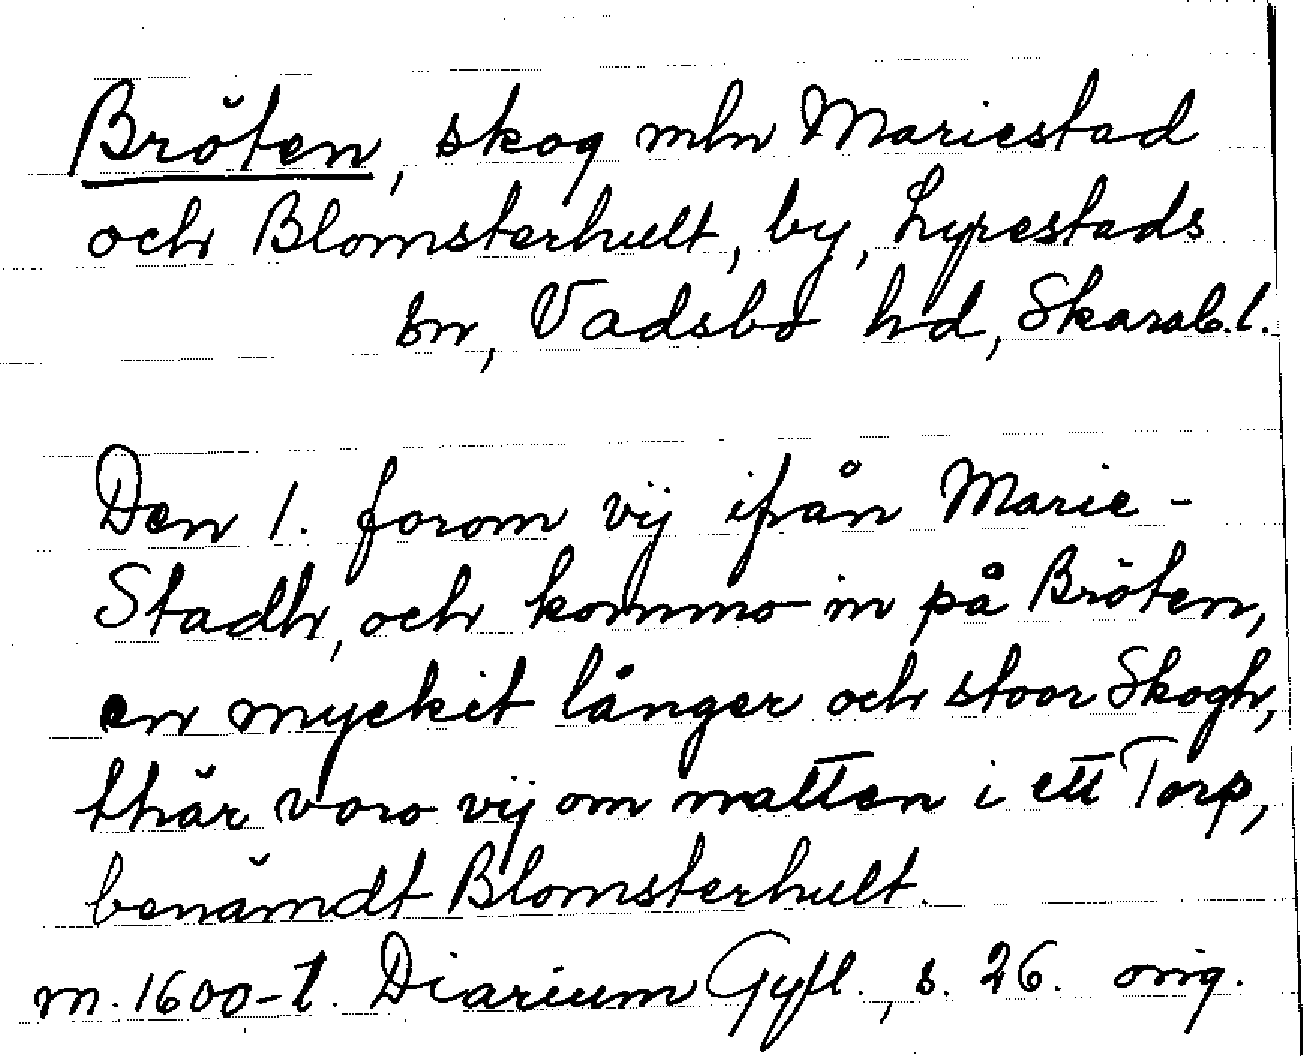 Bröten, skog mln Mariestad
och Blomsterhult, by, Lyrestads
sn, Vadsbo hd, Skarab. l.
Den 1. forom vij ifrån Marie-
Stadh, och kommo in på Bröten,
en myckit långer och stoor Skogh,
thär voro vij om natten i ett Torp,
benämdt Blomsterhult.
m. 1600-t. Diarium Gyll., s. 26. orig.